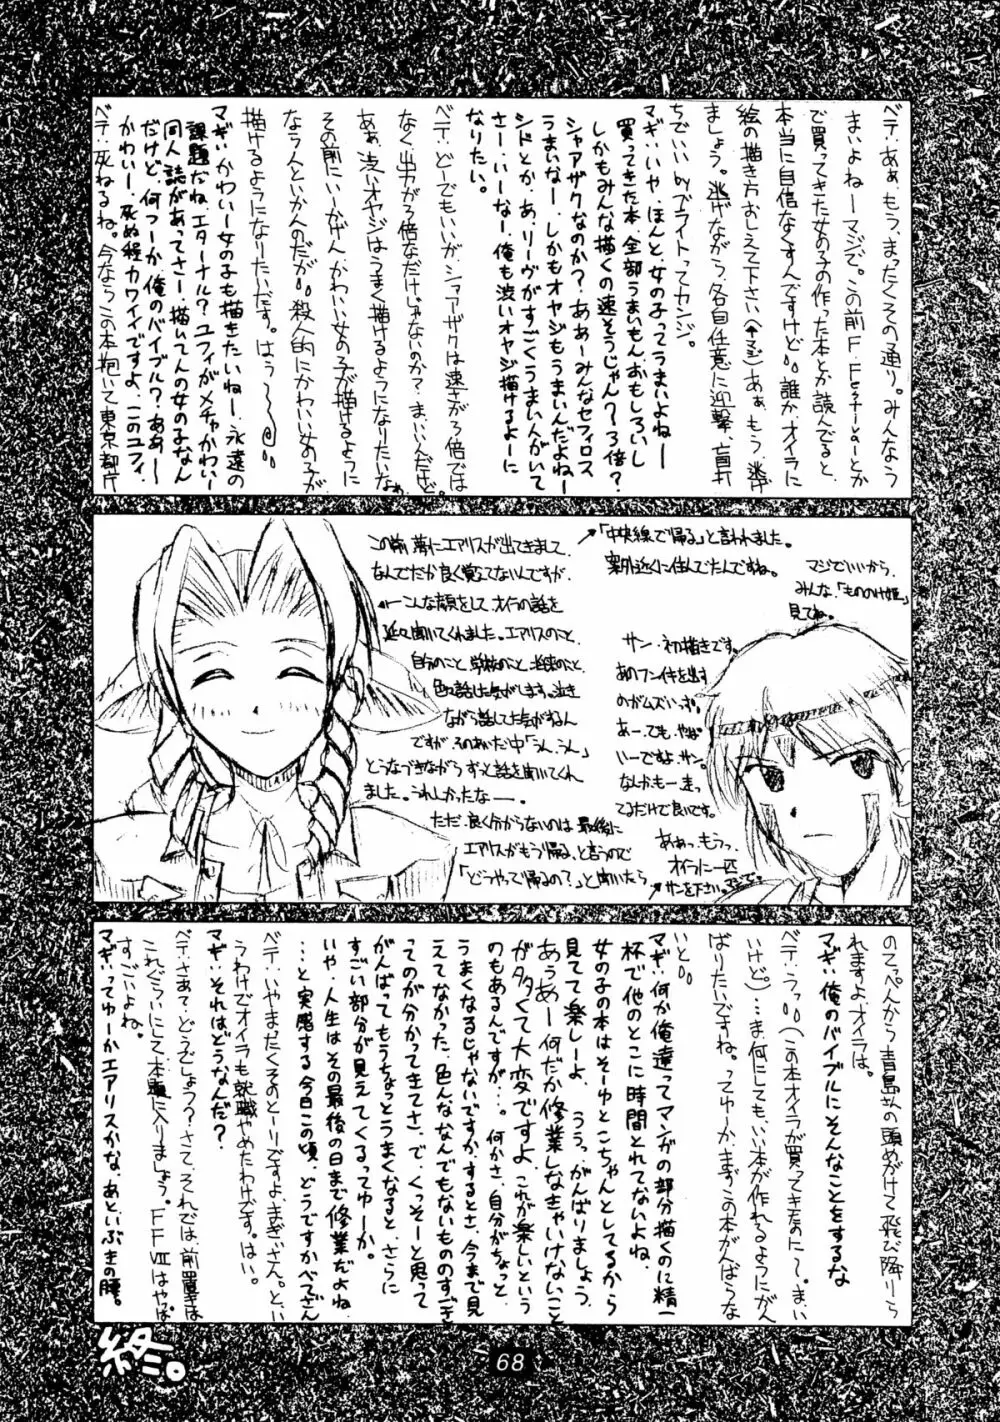 ベテ：あぁ、もう、まったくその通り。みんなう
まいよね―マジで。この前F・Festiaalーとか
で買ってきた女の子の作った本とか読んでると、
本当に自信なくすんですけど。。誰かオイラに
絵の描き方おしえて下さい(←マジ)あぁ、もう、逃げ
ましょう。逃げながら、各自任意に迎撃、盲打
ちでいいbyブライトってカンジ。
マギ：いや、ほんと、女の子ってうまいよね―
買ってきた本、全部うまいもんおもしろいし
しかもみんな描くの速そうじゃん～3倍？
シャアザクなのか？ああーみんなセフィロス
うまいなー、しかもオヤジもうまいんだよねー
シドとか、あ、リーヴがすごくうまい人がいて
さー、いーなー、俺も渋いオヤジ描けるよーに
なりたい。
ベテ：どーでもいいが、シャアザクは速さが3倍では
なく、出力が3倍なだけじゃないのか？まいいんだけど。
あぁ、渋いオヤジはうまく描けるようになりたいなぁ
その前にいーかげん、かわいい女の子が描けるように
なら人といかんのだが。。殺人的にかわいい女の子が
描けるようになりたいです。はぅ～
マギ：かわいー女の子も描きたいねー、永遠の
課題だね、エターナル？ユフィがメチャかわいー
同人誌があってさー、描いてんの女の子なん
だけど、何つーか俺のバイブル？ああー
かわいー、死ぬ程カワイイですよ、このユフィ、
ベテ：死ねるね。今ならこの本抱いて東京都庁
この前夢にエアリスが出てきまして、
なんでだか良く覚えてないんですが、
←こんな顔をしてオイラの話を
延々聞いてくれました。エアリスのこと、
自分のこと、学校のこと、将来のこと、
色々話した気がします。泣き
ながら話してた気がすねん
ですが、そのあいだ中「うん、うん」
とうなづきながらずっと話を聞いてくれ
ました。うれしかったな―。
ただ、良く分からないのは最後に
エアリスがもう帰る、と言うので
「どうやって帰るの？」と聞いたら
→「中央線で帰る」と言われました。
案外近くに住んでたんですね。
マジでいいから、
みんな、「もののけ姫」
見てね。
サン・初描きです。
あのフンイキを出す
のがムズいっす。
あー、でも、やぱ
いーですよ、サン。
なんかもー走っ
てるだけで良いです。
ああっ、もうっ、
オイラに一匹
サンを下さい。マジで。
のてっぺんから青島？の頭めがけて飛び降りら
れますよ、オイラは。
マギ：俺のバイブルにそんなことをするな
ベテ：うっ。。(この本オイラが買ってきたのにー)、まい
いけど)…ま何にしても、いい本が作れるようにがん
ばりたいですね。ってゆーか、まずこの本がんばらな
いと。。
マギ：何か俺達ってマンガの部分描くのに精一
杯で他のとこに時間とれてないよね、
女の子の本はそーゆとこちゃんとしてるから
見てて楽しーよ　ううっがんばりましょう、
あぅあー何だか修業しなきゃいけないこと
がタタくて大変ですよ、これが楽しいという
のもあるんですが…、何かさ、自分がちょっと
うまくなるじゃないですか、するとさ、今まで見
えてなかった、色んななんでもないもののすごさ
ってのが分かってきてさ、で、くっそーと思って
がんばってもうちょっとうまくなると、さらに
すごい部分が見えてくるってゆーか。
いや、人生はその最後の日まで修業だよね
…と実感する今日この頃、どうですかべてさん
ベテ：いやまだくそのとーりですよ、まぎぃさん。と、い
うわけでオイラも就職やめたわけです。はい。
マギ：それはどうなんだ？
ベテ：さあて、どうでしょう？さて、それでは、前置きは
これぐらいにして本題に入りましょう。FFⅦはやっぱ
すごいよね。
マギ：ってゆーかエアリスかな、あといぶきの腰。
終。
68